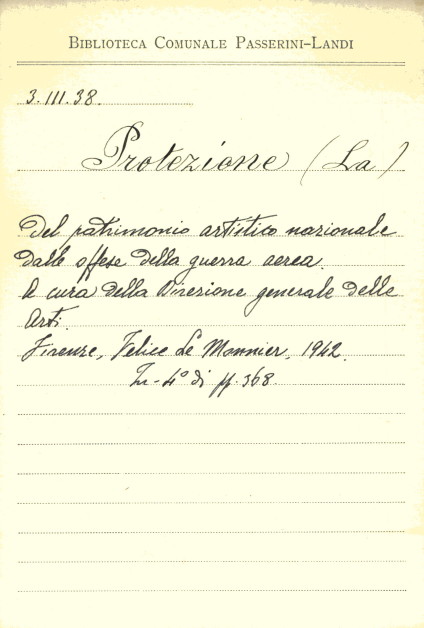 BIBLIOTECA COMUNALE PASSERINI-LANDI
3.III.38.
Protezione (La)
del patrimonio artistico nazionale
dalle offese della guerra aerea.
A cura della Direzione generale delle
Arti.
Firenze, Felice Le Monnier, 1942.
In-4° di pp. 368.